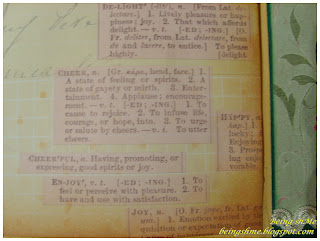 DE-LIGHT', n. [From Lat. de-
lectare.] 1. Lively pleasure or hap-
piness; joy. 2. That which affords
delight. — v. t. [-ED; -ING.] [O.
Fr. deliter, from Lat. delectare, from
de and lacere, to entice.] To please
highly. [delight
CHEER, n. [Gr. head, face.] 1.
A state of feeling or spirits. 2. A
state of gayety or mirth. 3. Enter-
tainment. 4. Applause; encourage-
ment. — v. t. [-ED; -ING.] 1. To
cause to rejoice. 2. To infuse life,
courage, or hope, into. 3. To urge
or salute by cheers. — v. i. To utter
cheers.
HAP'PY, a.
hap.] 1.
lucky;
Enjoying
3.
ing
CHEER'FUL, a. Having, promoting, or
expressing, good spirits or joy.
EN-JOY', v. t. [-ED; -ING.] 1. To
feel or perceive with pleasure. 2. To
have and use with satisfaction.
JOY, n. [O. Fr. joye, fr. Lat.
1. Emotion excited by
quisition or expectation of
Being in Me
beingshme.blogspot.com